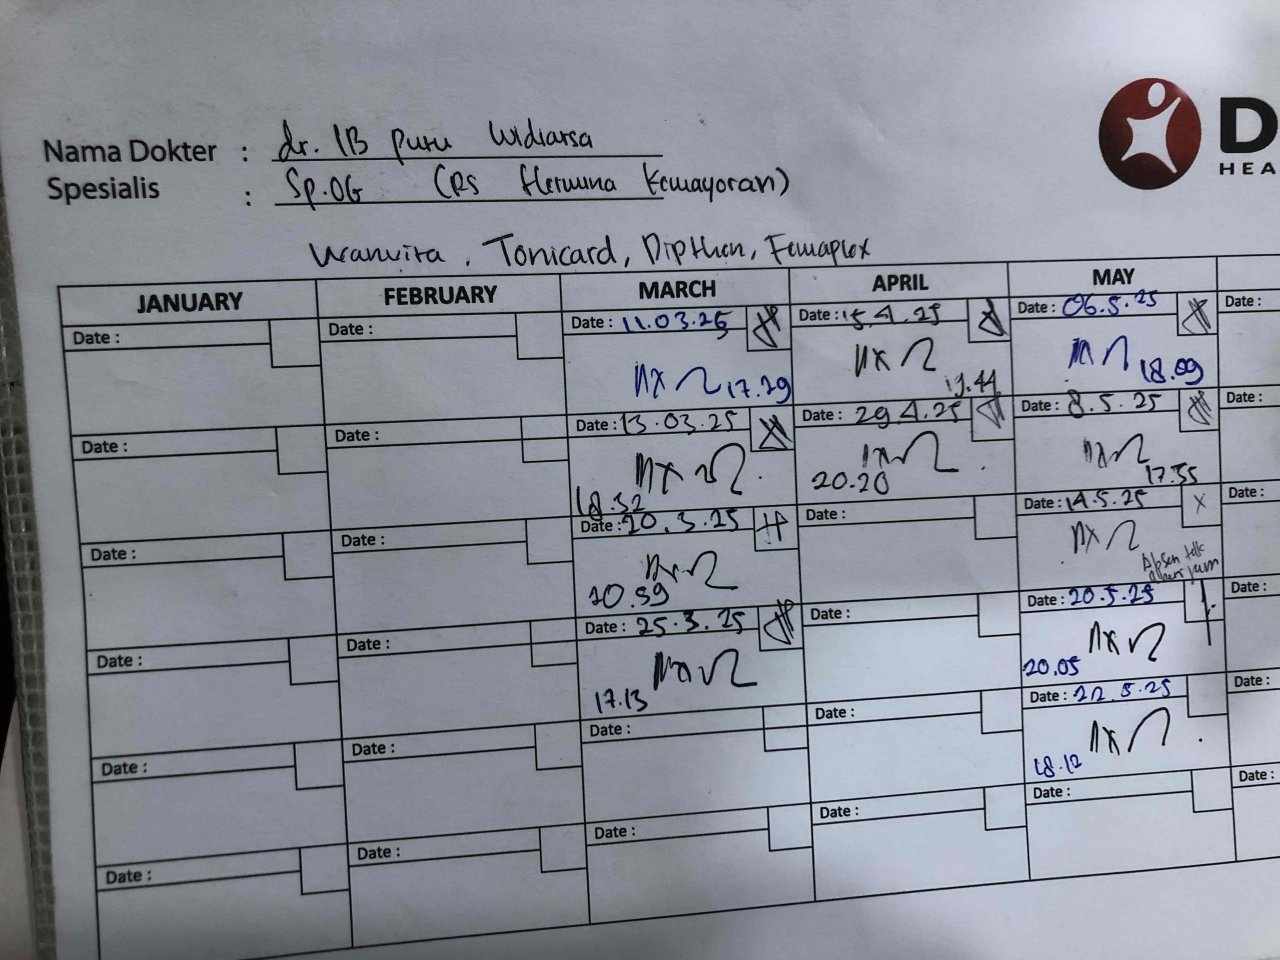 Nama Dokter : dr. IB Putu Widiarsa
Spesialis : Sp.OG (RS Hermina Kemayoran)
D
HEA
Tonicard, Dipthen, Femaplex
JANUARY FEBRUARY MARCH APRIL MAY
Date : Date : Date : 11.03.25 Date : 15.4.25 Date : 06.5.25 Date :
17.29 18.09
Date : Date : Date : 13.03.25 Date : 29.4.25 Date : 8.5.25 Date :
18.32 20.20 17.55
Date : Date : Date : 20.3.25 Date : Date : 14.5.25 Date :
Absen
Date : Date : Date : 25.3.25 Date : Date : 20.5.25 Date :
17.13 20.05
Date : Date : Date : Date : Date : 22.5.25 Date :
18.12
Date : Date : Date : Date : Date : Date :